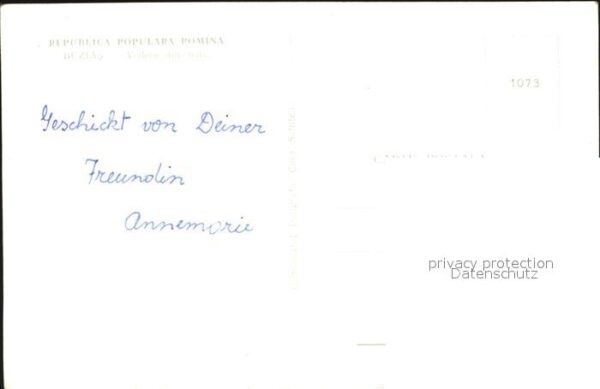 REPUBLICA POPULARA ROMINA
BUZIAŞ
Geschickt von Deiner
Freundin
Annemarie
1073
CARTE POSTALA
privacy protection
Datenschutz